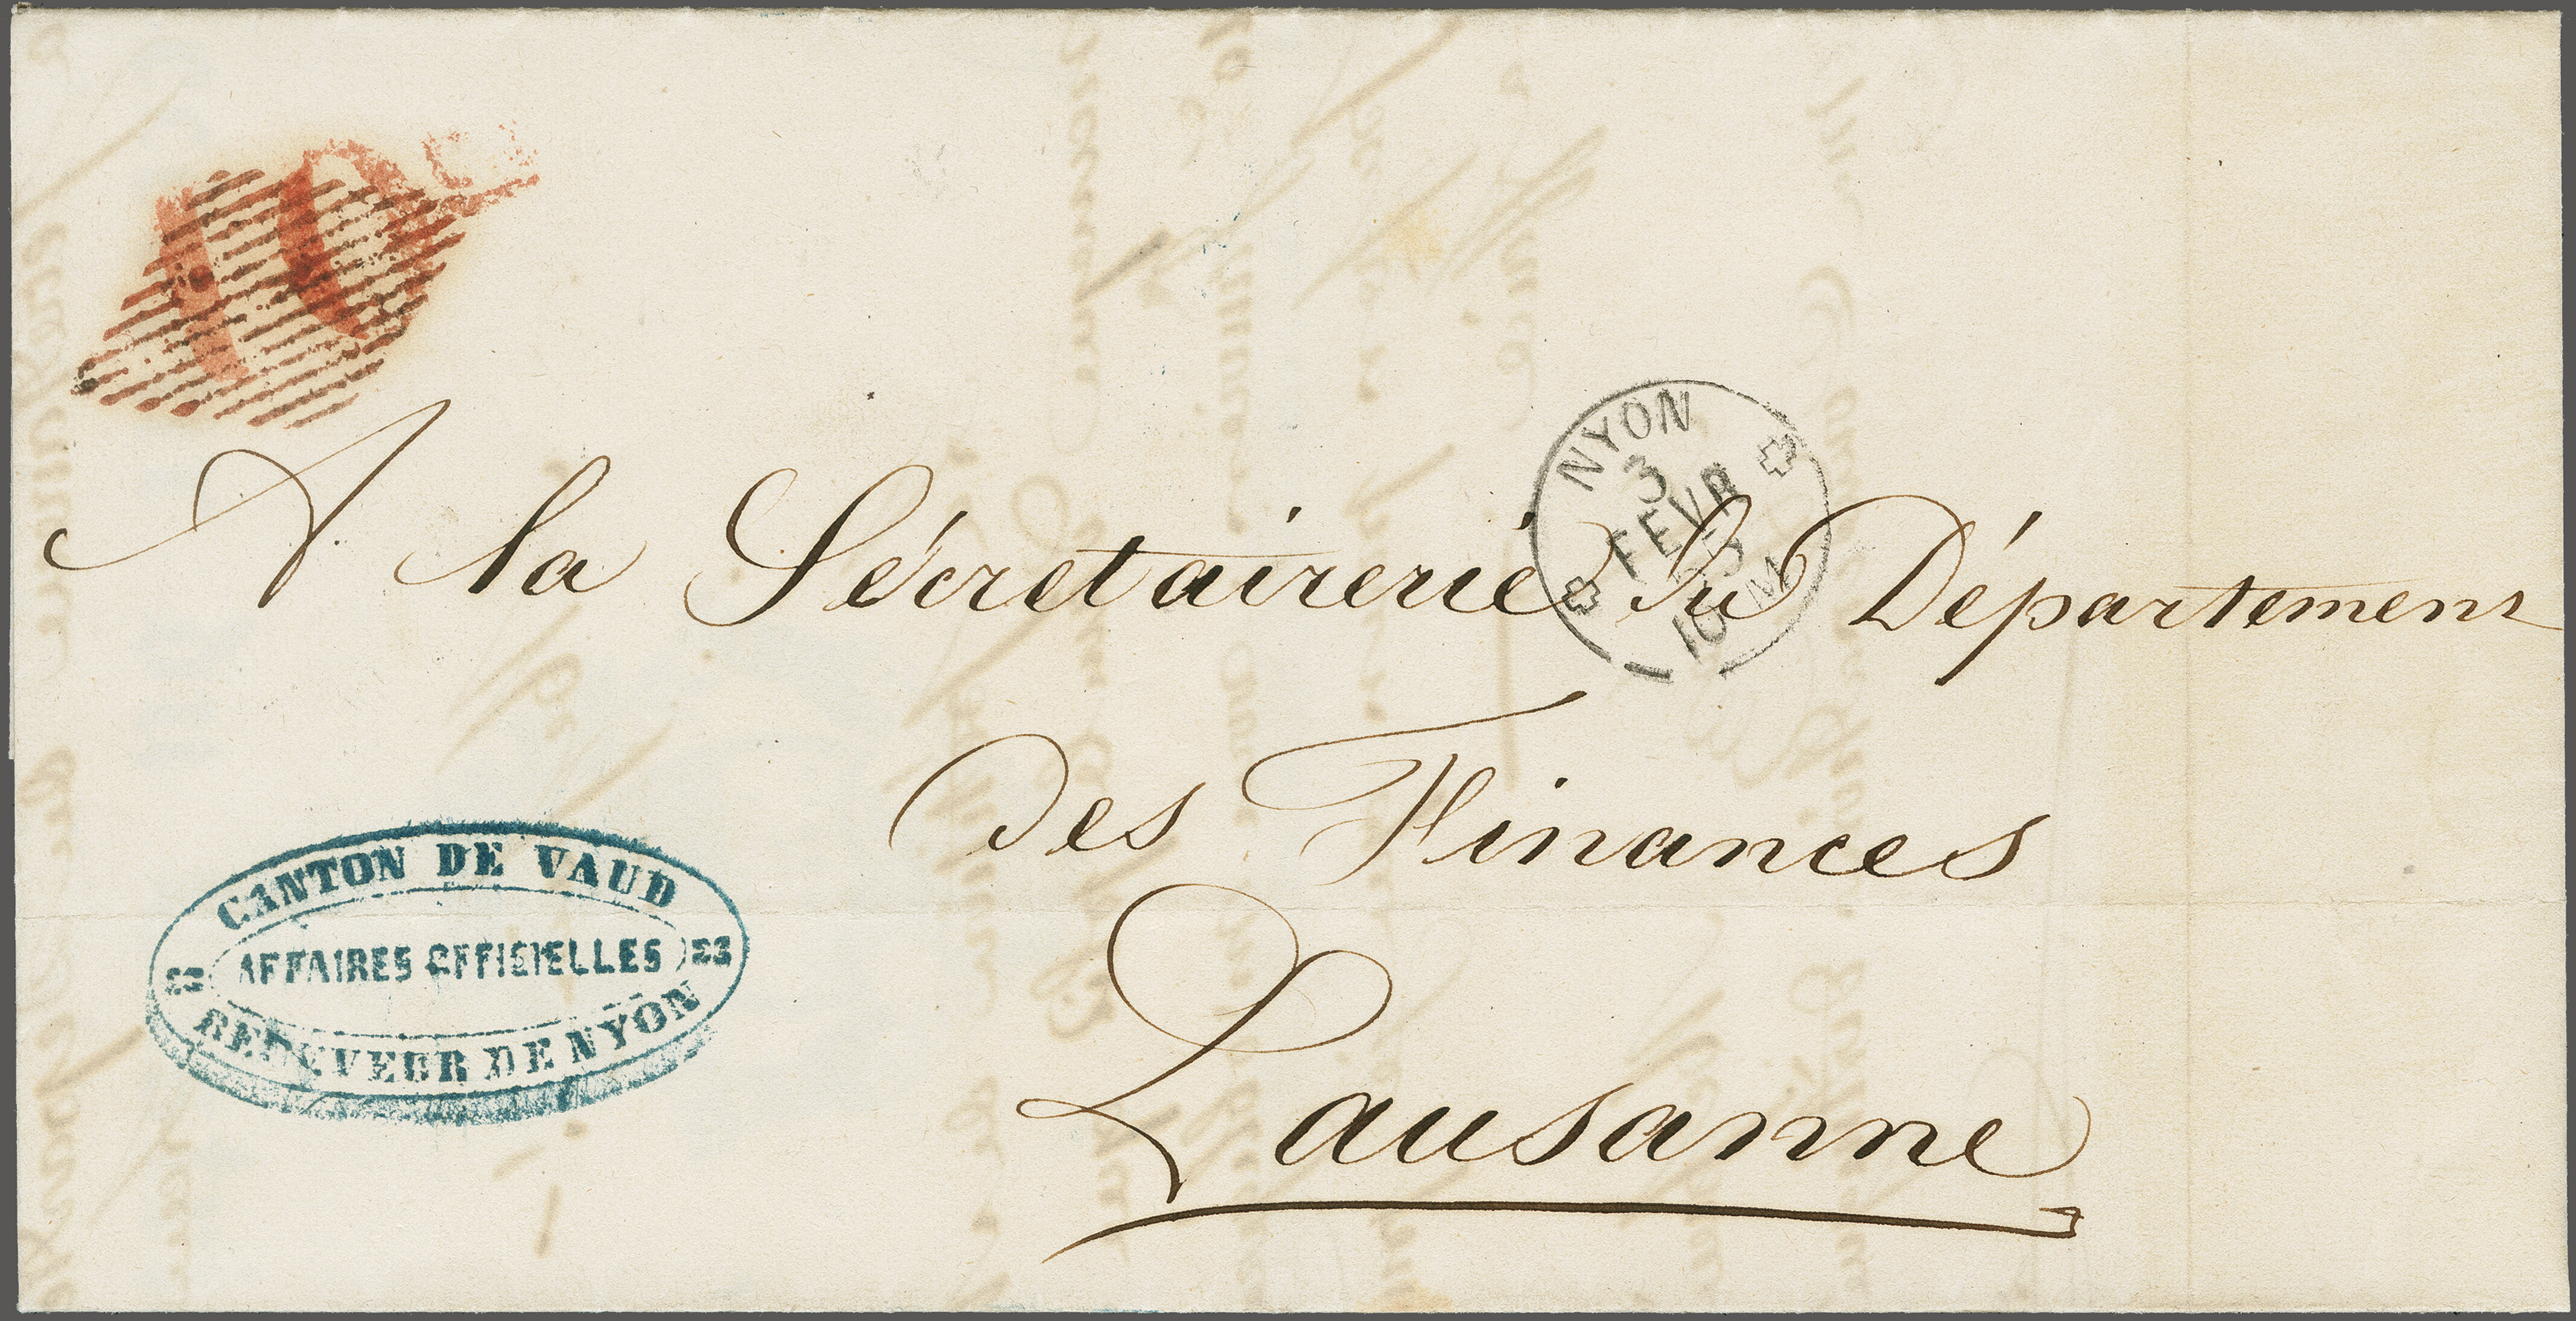 10 Cs
NYON
3
FEVR
53
10 M
A la Sécretairerie du Département
des Finances
Lausanne
CANTON DE VAUD
AFFAIRES OFFICIELLES
RECEVEUR DE NYON